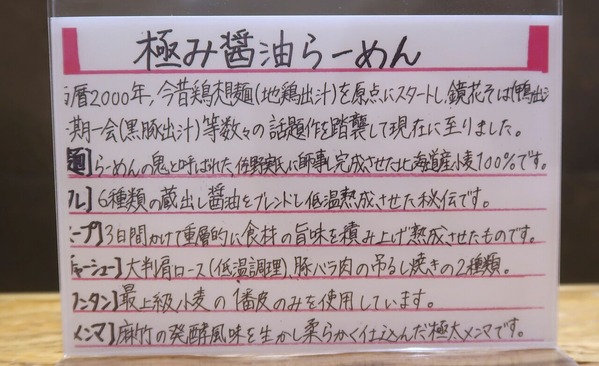 極み醤油らーめん
暦2000年,今昔鶏想麺(地鶏出汁)を原点にスタートし,鏡花そば(鴨出汁
期一会(黒豚出汁)等数々の話題作を踏襲して現在に至りました。
麺】らーめんの鬼と呼ばれた,佐野実氏に師事し完成させた北海道産小麦100%です。
レ】6種類の蔵出し醤油をブレンドし低温熟成させた秘伝です。
ープ】3日間かけて重層的に食材の旨味を積み上げ熟成させたものです。
チャーシュー】大判肩ロース(低温調理),豚バラ肉の吊るし焼きの2種類。
ンタン】最上級小麦の1番皮のみを使用しています。
メンマ】麻竹の発酵風味を生かし柔らかく仕込んだ極太メンマです。